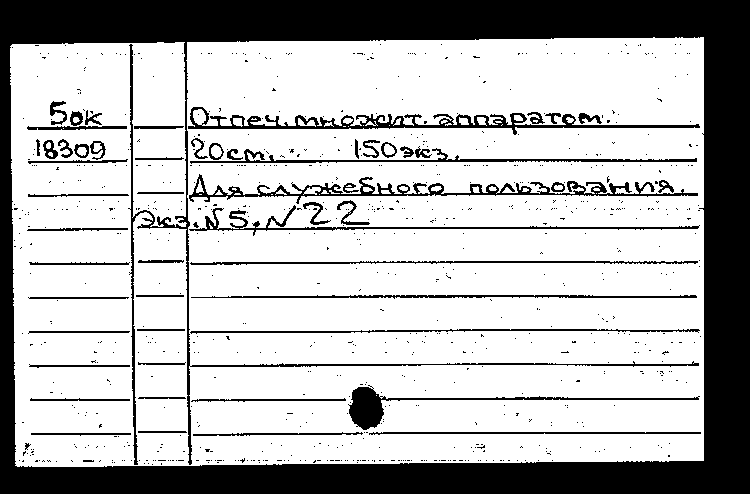 5ок Отпеч. множит. аппаратом.
18309 20см. 150экз.
Для служебного пользования.
Экз. №5, №22